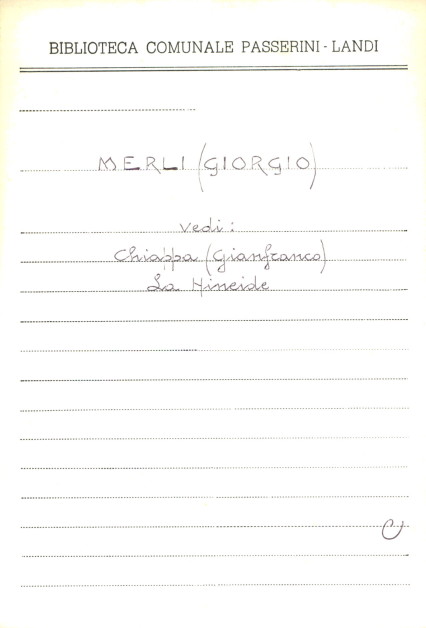 BIBLIOTECA COMUNALE PASSERINI - LANDI
MERLI (GIORGIO)
vedi:
Chiappa (Gianfranco)
La Hineide